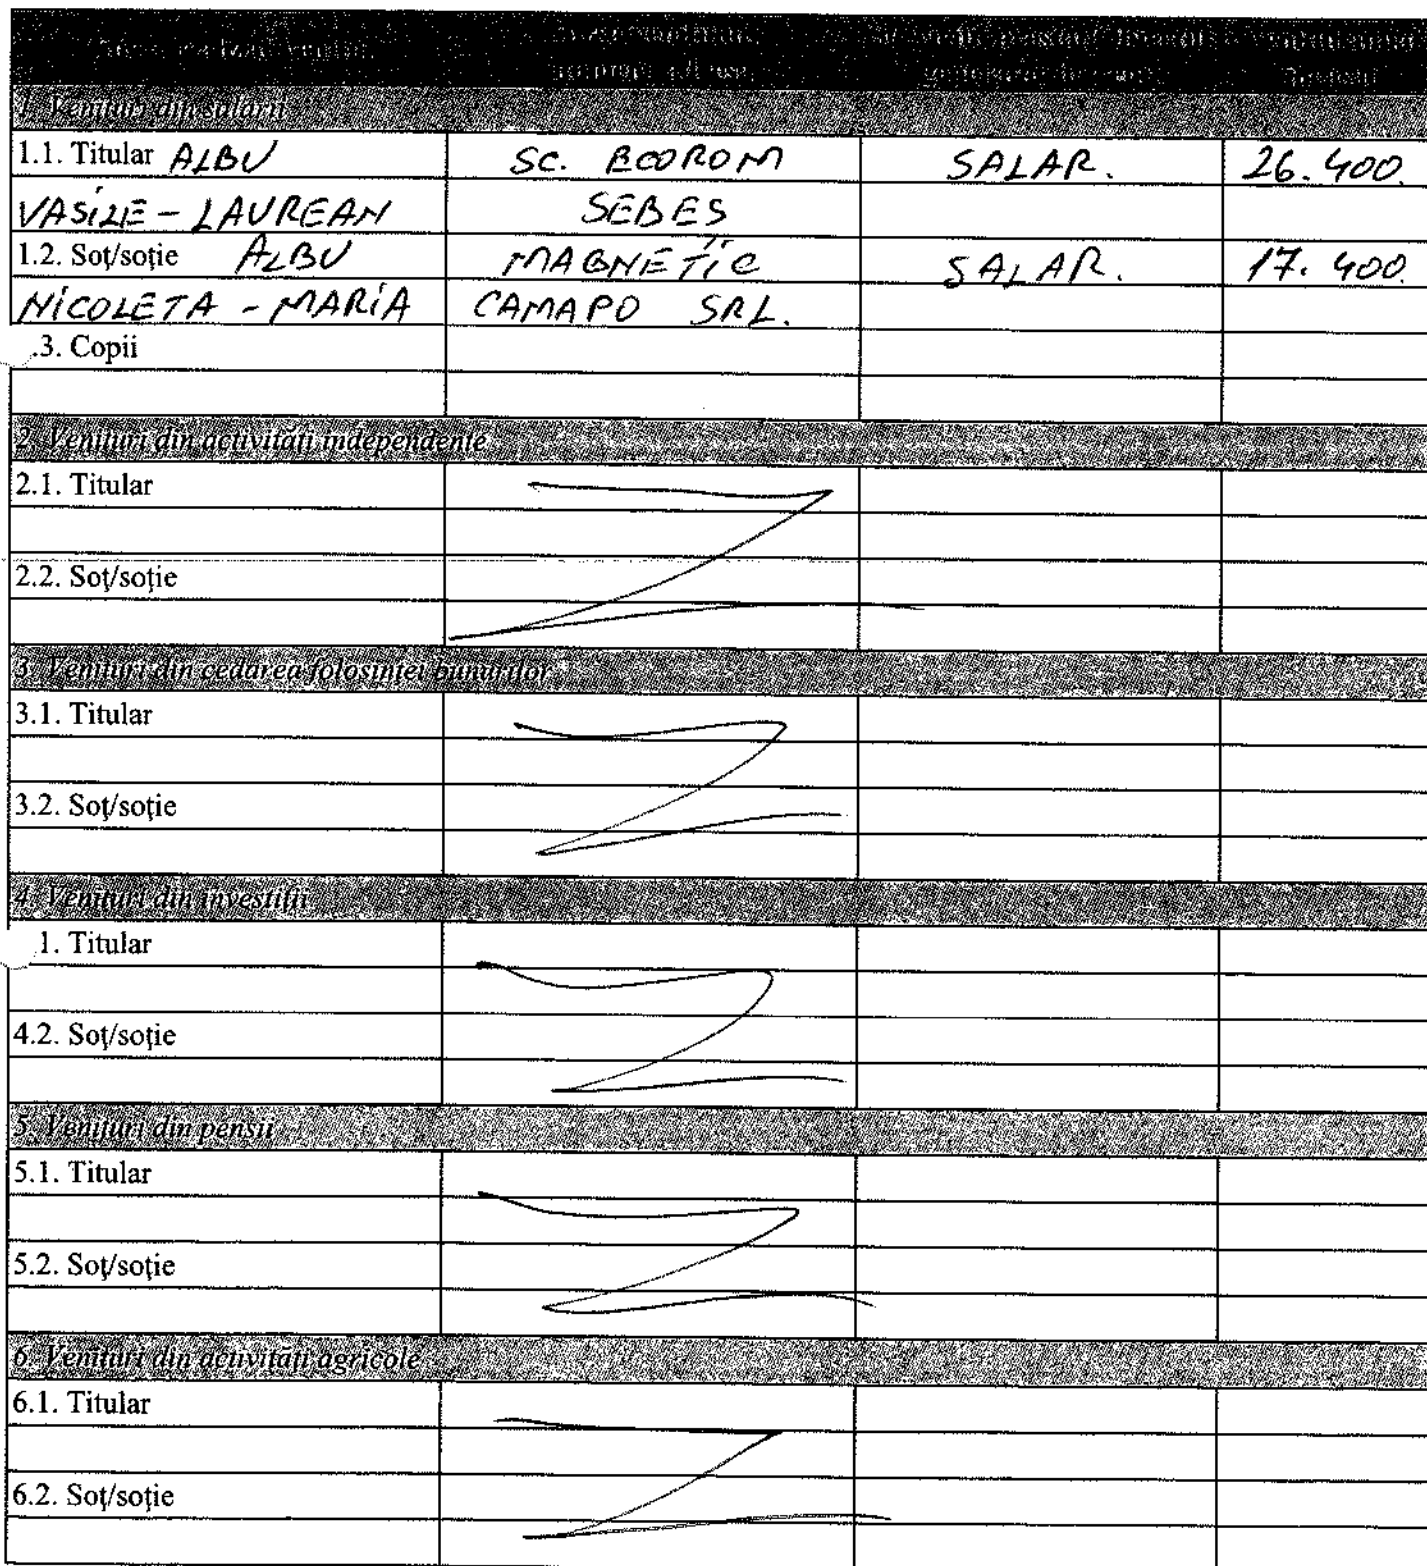 1. Venituri din salarii
1.1. Titular ALBU SC. ECOROM SALAR. 26.400.
VASILE - LAUREAN SEBES
1.2. Soț/soție ALBU MAGNETIC SALAR. 17.400.
NICOLETA - MARIA CAMAPO SRL.
.3. Copii
2. Venituri din activități independente
2.1. Titular
2.2. Soț/soție
3. Venituri din cedarea folosinței bunurilor
3.1. Titular
3.2. Soț/soție
4. Venituri din investiții
.1. Titular
4.2. Soț/soție
5. Venituri din pensii
5.1. Titular
5.2. Soț/soție
6. Venituri din activități agricole
6.1. Titular
6.2. Soț/soție